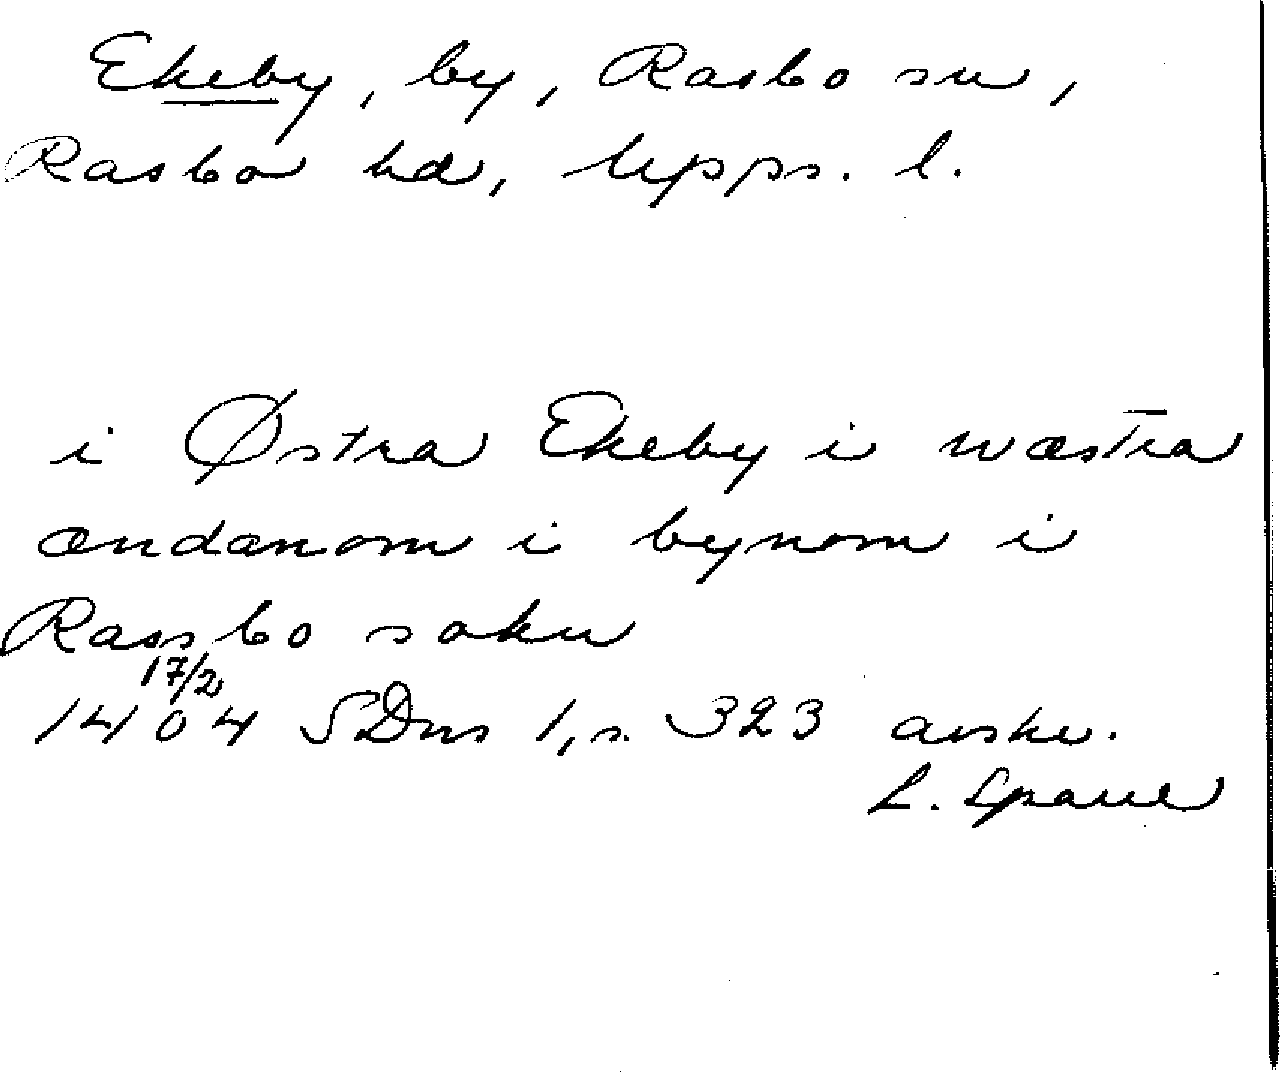 Ekeby, by, Rasbo sn,
Rasbo hd, Upps. l.
i Østra Ekeby i wæstra
ændanom i bynom i
Rassbo sokn
17/2
1404 SDns 1, s. 323 avskr.
L. Spaue